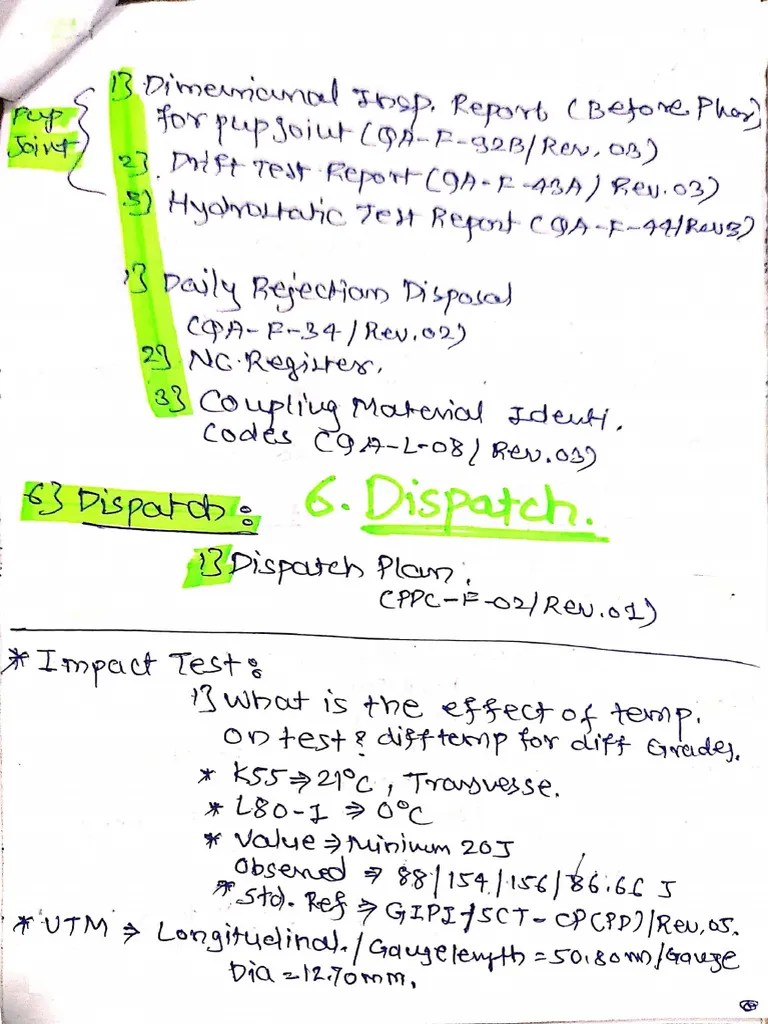 Pup
Joint
1) Dimensional Insp. Report (Before Phos)
for pup joint (QA-F-92B/Rev. 03)
2) Drift Test Report (QA-F-43A/Rev.03)
3) Hydrostatic Test Report (QA-F-44/Rev3)
1) Daily Rejection Disposal
(QA-F-34/Rev.02)
2) NC. Register.
3) Coupling Material Identi.
Codes (QA-L-08/Rev.03)
6) Dispatch: 6. Dispatch.
1) Dispatch Plan.
(PPC-F-02/Rev.01)
* Impact Test:
1) What is the effect of temp.
on test & diff temp for diff Grades.
* K55 ⇒ 21°C, Transvesse.
* L80-1 ⇒ 0°C
* Value ⇒ Minimum 20J
Observed ⇒ 88/154/156/86.66 J
* Std. Ref ⇒ GIPI/5CT-CP(PD)/Rev.05.
* UTM ⇒ Longitudinal./Gauge length = 50.80m/Gauge
Dia = 12.70mm.